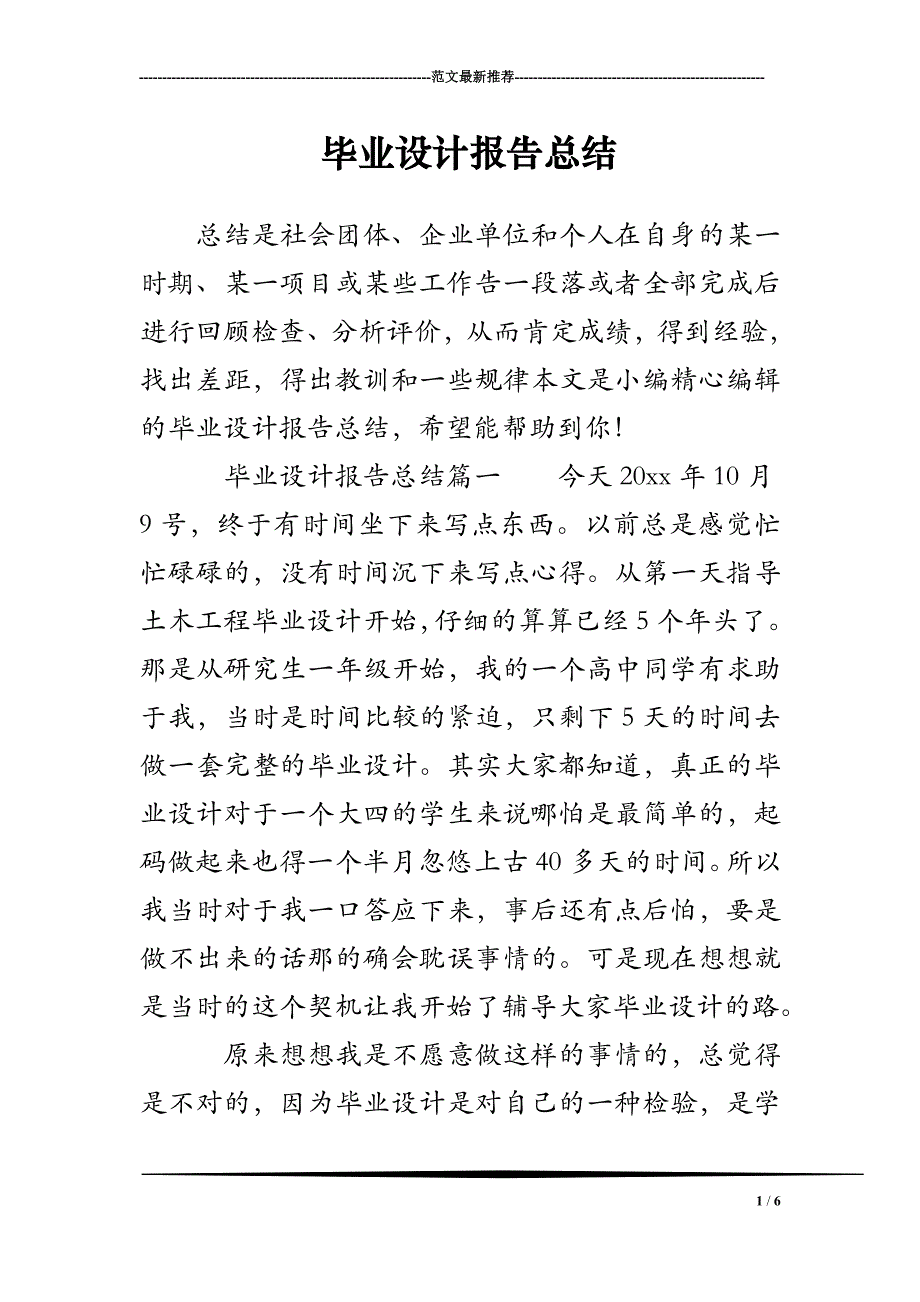 ---------------------------------------------------------------范文最新推荐------------------------------------------------------
毕业设计报告总结
总结是社会团体、企业单位和个人在自身的某一
时期、某一项目或某些工作告一段落或者全部完成后
进行回顾检查、分析评价，从而肯定成绩，得到经验，
找出差距，得出教训和一些规律本文是小编精心编辑
的毕业设计报告总结，希望能帮助到你！
毕业设计报告总结篇一 今天 20xx 年 10 月
9 号，终于有时间坐下来写点东西。以前总是感觉忙
忙碌碌的，没有时间沉下来写点心得。从第一天指导
土木工程毕业设计开始，仔细的算算已经 5 个年头了。
那是从研究生一年级开始，我的一个高中同学有求助
于我，当时是时间比较的紧迫，只剩下 5 天的时间去
做一套完整的毕业设计。其实大家都知道，真正的毕
业设计对于一个大四的学生来说哪怕是最简单的，起
码做起来也得一个半月忽悠上古 40 多天的时间。所以
我当时对于我一口答应下来，事后还有点后怕，要是
做不出来的话那的确会耽误事情的。可是现在想想就
是当时的这个契机让我开始了辅导大家毕业设计的路。
原来想想我是不愿意做这样的事情的，总觉得
是不对的，因为毕业设计是对自己的一种检验，是学
1 / 6